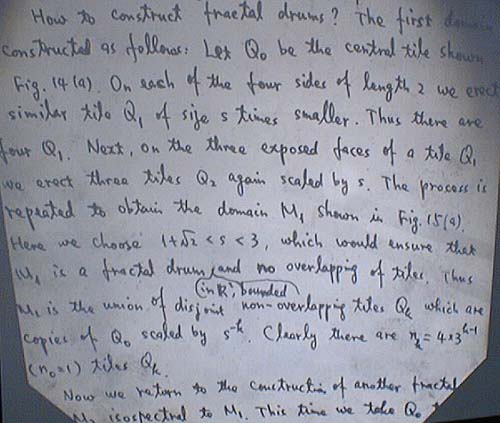 How to construct fractal drums? The first domain
constructed as follows: Let Q0 be the central tile shown
Fig. 14(a). On each of the four sides of length 2 we erect
similar tile Q1 of size s times smaller. Thus there are
four Q1. Next, on the three exposed faces of a tile Q1
we erect three tiles Q2 again scaled by s. The process is
repeated to obtain the domain M1 shown in Fig. 15(a).
Here we choose 1+√2 < s < 3, which would ensure that
M1 is a fractal drum, and no overlapping of tiles. Thus
(in R², bounded)
M1 is the union of disjoint non-overlapping tiles Qk which are
copies of Q0 scaled by s^-k. Clearly there are nk = 4×3^k-1
(n0=1) tiles Qk.
Now we return to the construction of another fractal
M2 isospectral to M1. This time we take Q0